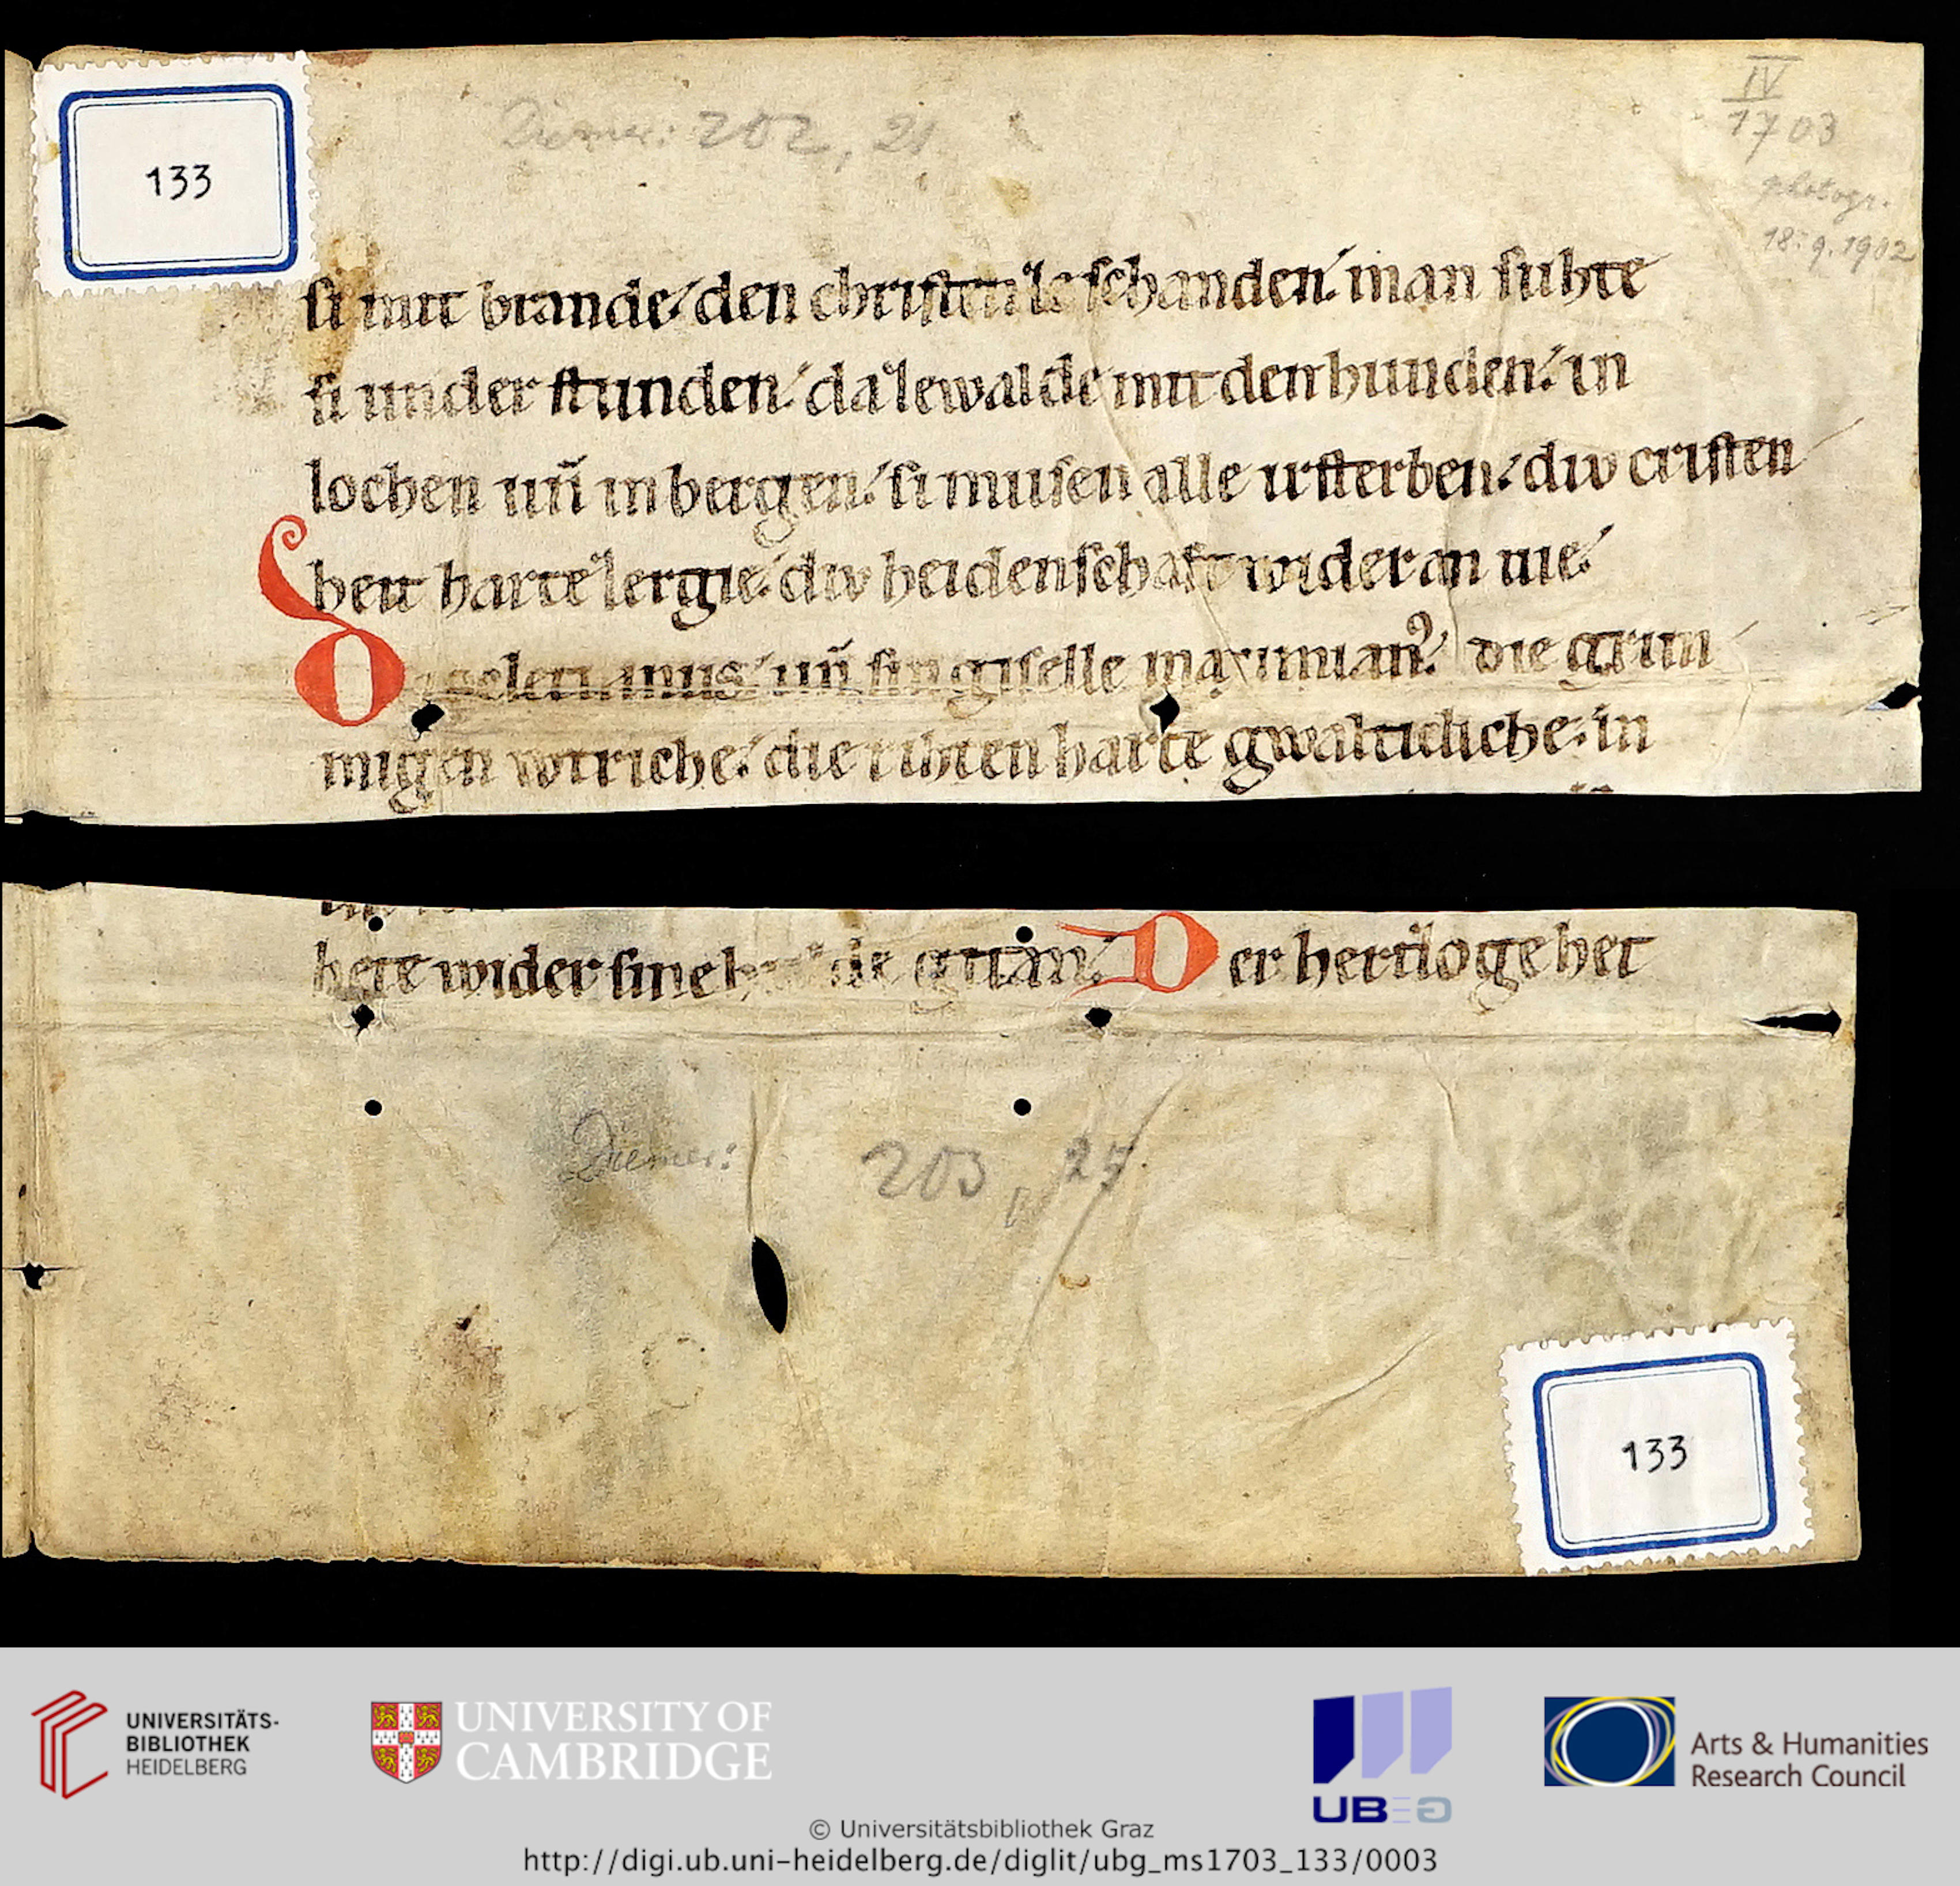 133
Diemer: 202, 21
IV
1703
photogr.
18.9.1902
ſi mit brande. den chriſten ze ſchanden. man ſuhte
ſi under ſtunden. da ze walde mit den hunden. in
lochen uñ in bergen. ſi muſen alle irſterben. div criſten
heit harte zergie. div heidenſchaft wider an vie.
D uñ ſin giſelle maximian⁹. die grim
migen wtriche. die rihten harte gwaltichliche. in
hete wider ſine gitan. Der herzoge het
Diemer: 203, 25
133
UNIVERSITÄTS-
BIBLIOTHEK
HEIDELBERG
UNIVERSITY OF
CAMBRIDGE
UBG
Arts & Humanities
Research Council
© Universitätsbibliothek Graz
http://digi.ub.uni-heidelberg.de/diglit/ubg_ms1703_133/0003